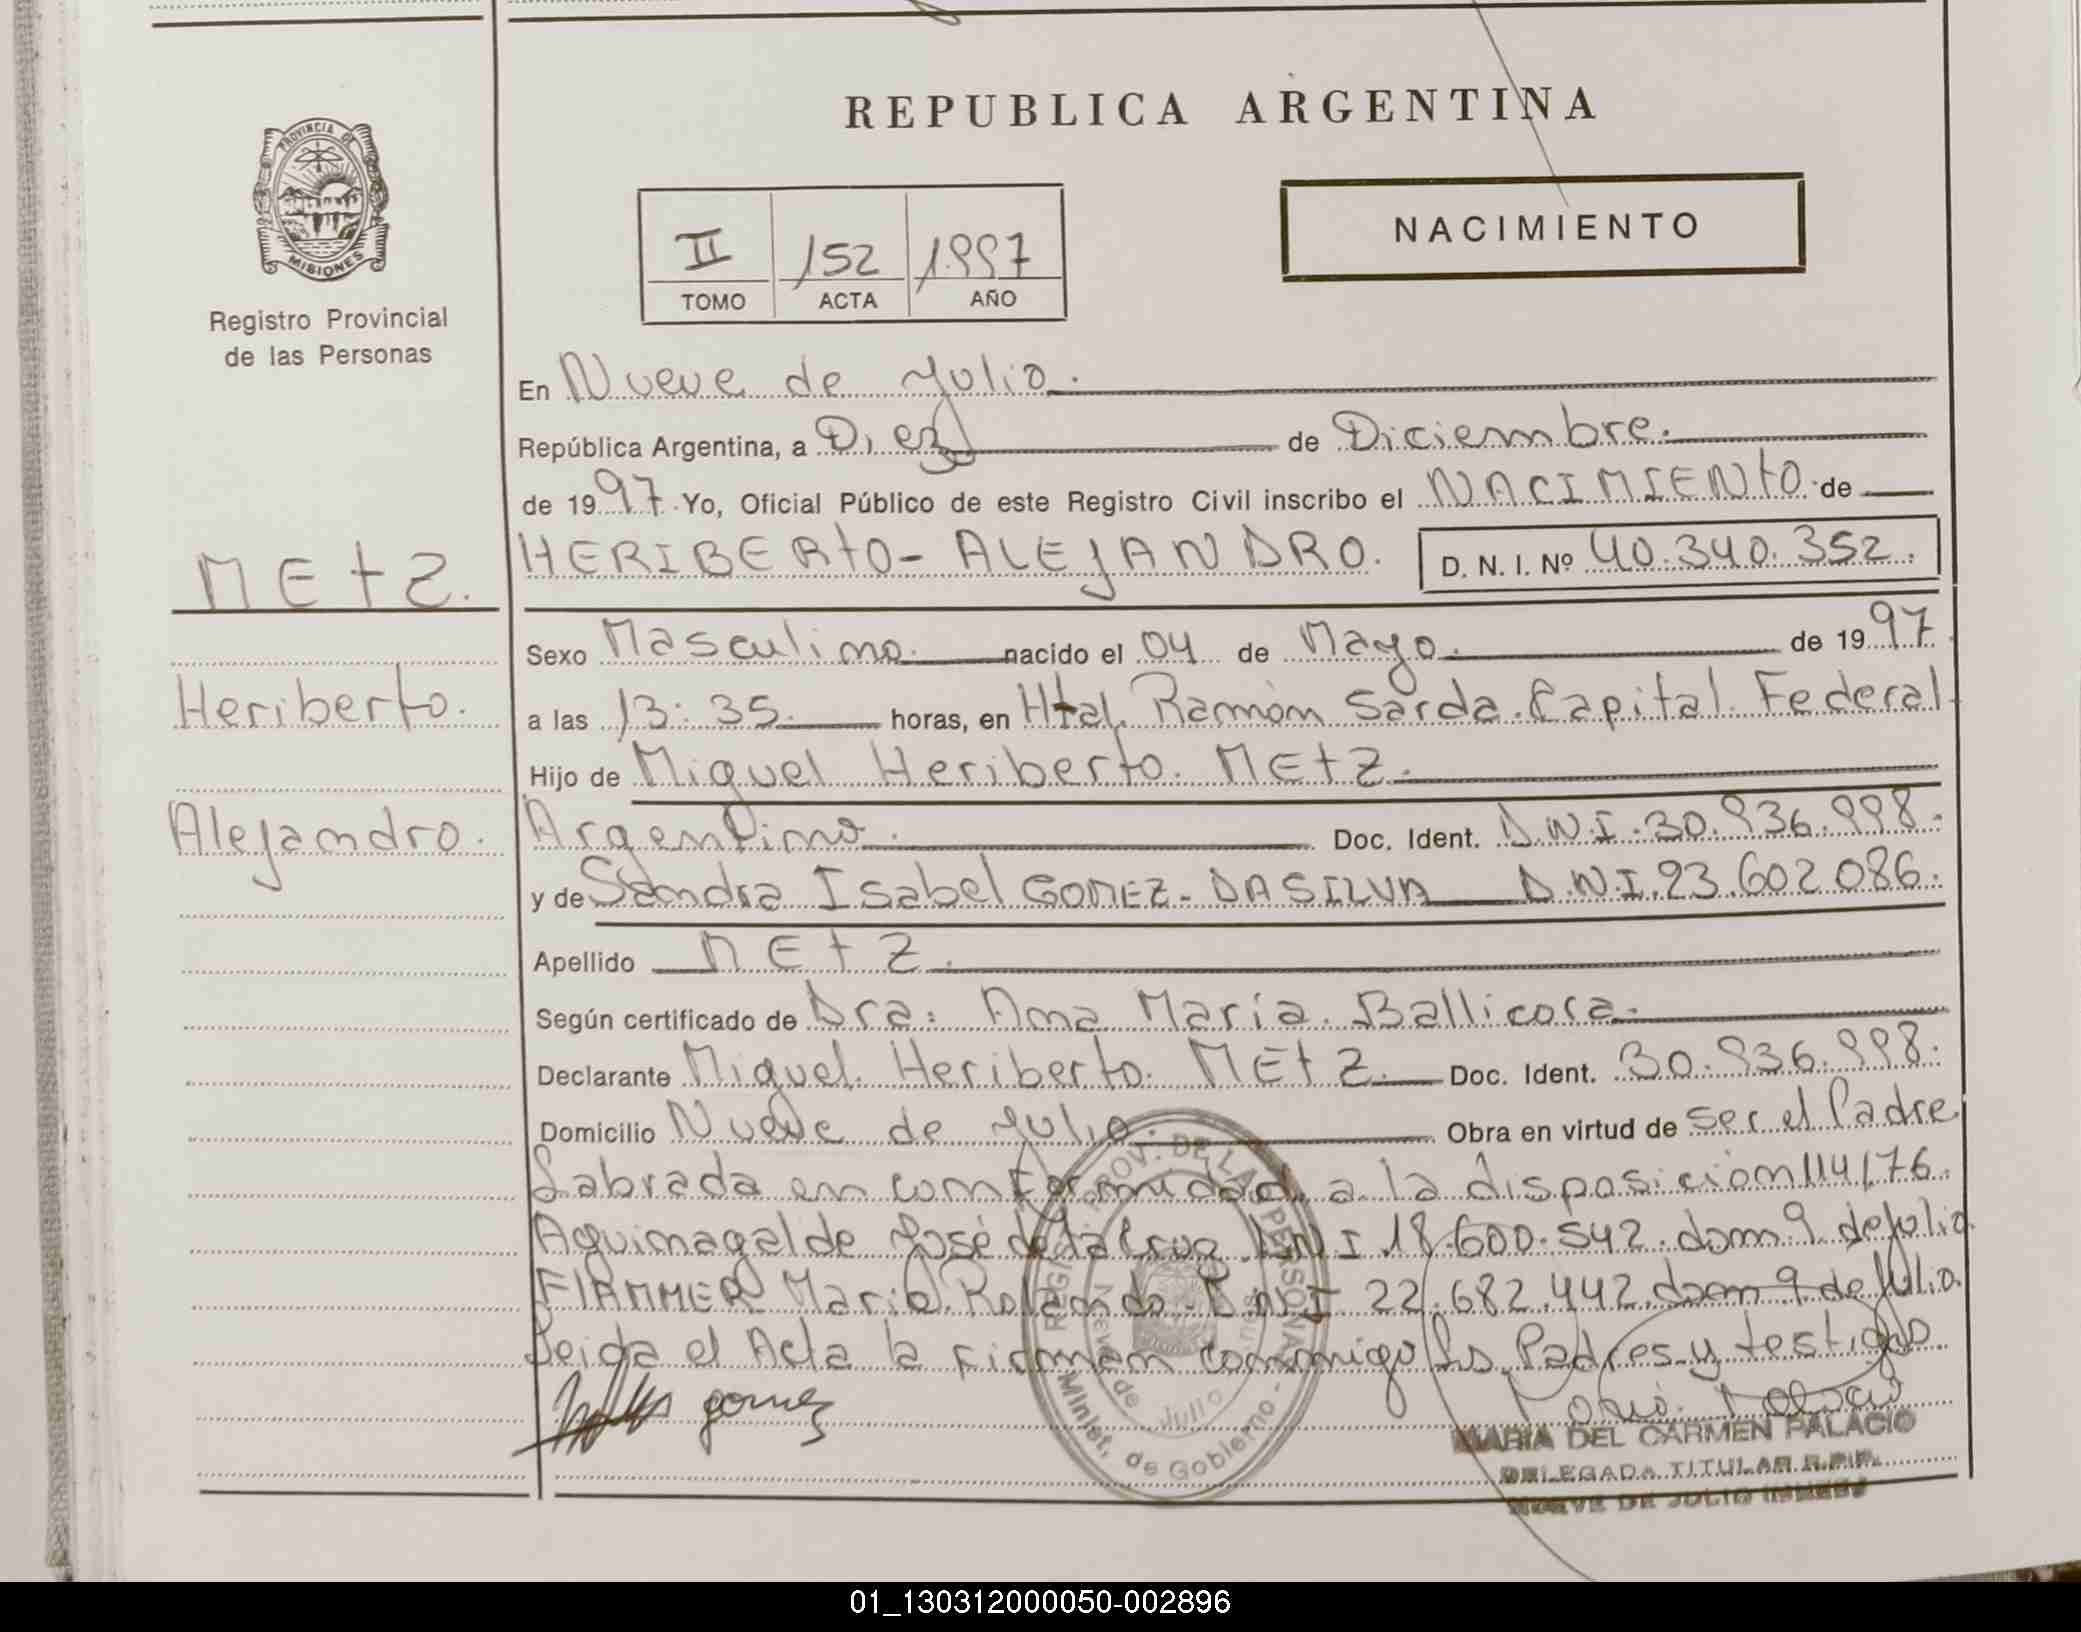 REPUBLICA ARGENTINA
PROVINCIA DE
MISIONES
Registro Provincial
de las Personas
II 152 1.997
TOMO ACTA AÑO
NACIMIENTO
En Nueve de Julio.
República Argentina, a Diez de Diciembre.
de 1997 Yo, Oficial Público de este Registro Civil inscribo el NACIMIENtO de
MEtZ.
HERIBERtO-ALEJANDRO. D. N. I. Nº 40.340.352.
Sexo Masculino. nacido el 04 de Mayo. de 1997
Heriberto.
a las 13:35. horas, en Htal. Ramón Sarda. Capital Federal.
Hijo de Miguel Heriberto. MEtZ.
Alejandro.
Argentino. Doc. Ident. D.N.I.30.936.998.
y de Sandra Isabel GOMEZ-DASILVA D.N.I.23.602.086.
Apellido MEtZ.
Según certificado de Dra: Ana María. Ballicora.
Declarante Miguel. Heriberto. MEtZ. Doc. Ident. 30.936.998.
Domicilio Nueve de Julio. Obra en virtud de ser el Padre
Labrada en conformidad a la disposición 114/76.
Aquimagalde José de la Cruz D.N.I 18.600.542. dom 9 de Julio
FLAMMER Mario. Rolando. D.N.I 22.682.442. dom 9 de Julio.
Leida el Acta la firman conmigo los Padres y testigos
gomez
REGIS. PROV. DE LAS PERSONAS
Nueve de Julio
Minist. de Gobierno
MARIA DEL CARMEN PALACIO
DELEGADA TITULAR R.P.P.
NUEVE DE JULIO
01_130312000050-002896